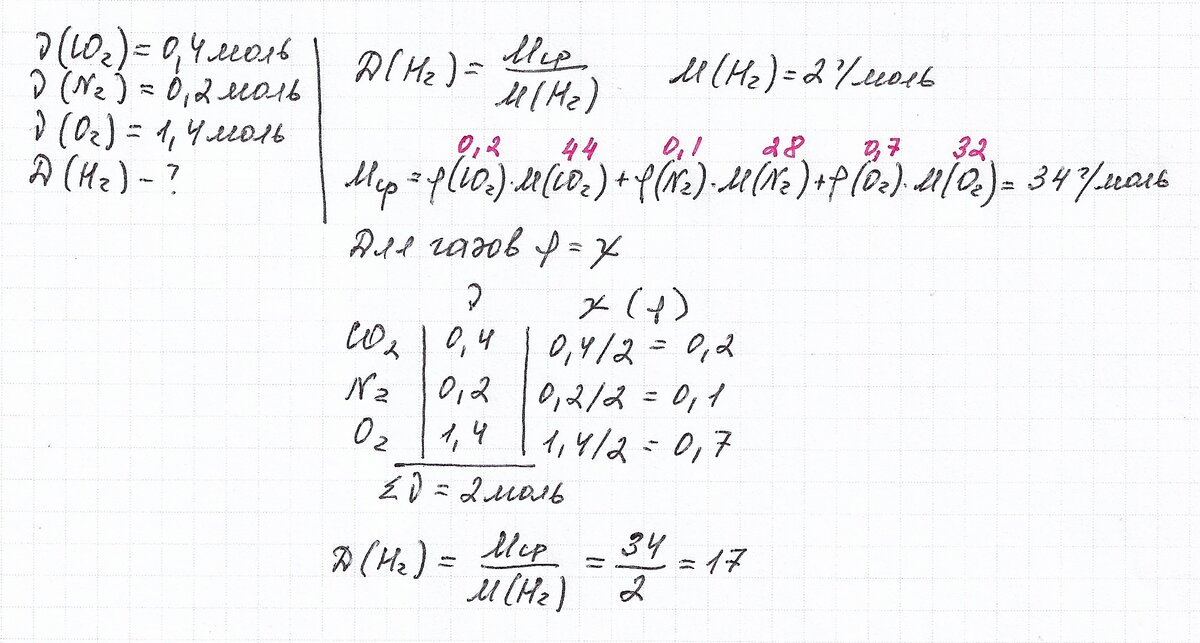 ν(CO₂) = 0,4 моль
ν(N₂) = 0,2 моль
ν(O₂) = 1,4 моль
D(H₂) – ?
D(H₂) = Mср / M(H₂)     M(H₂) = 2 г/моль
0,2 44 0,1 28 0,7 32
Mср = φ(CO₂)·M(CO₂) + φ(N₂)·M(N₂) + φ(O₂)·M(O₂) = 34 г/моль
Для газов φ = χ
ν χ (φ)
CO₂ | 0,4 | 0,4/2 = 0,2
N₂ | 0,2 | 0,2/2 = 0,1
O₂ | 1,4 | 1,4/2 = 0,7
Σν = 2 моль
D(H₂) = Mср / M(H₂) = 34 / 2 = 17